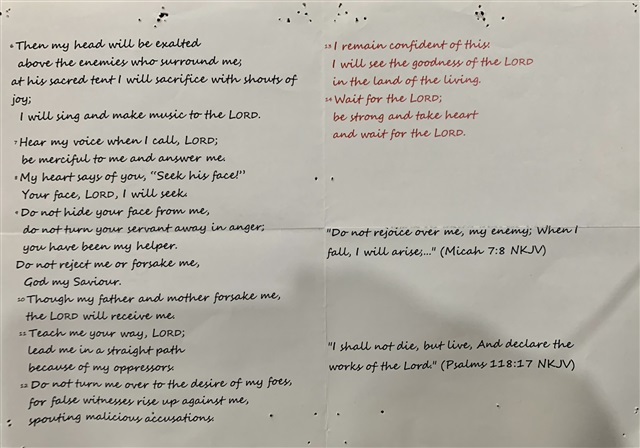 6 Then my head will be exalted
above the enemies who surround me;
at his sacred tent I will sacrifice with shouts of
joy;
I will sing and make music to the LORD.
7 Hear my voice when I call, LORD;
be merciful to me and answer me.
8 My heart says of you, "Seek his face!"
Your face, LORD, I will seek.
9 Do not hide your face from me,
do not turn your servant away in anger;
you have been my helper.
Do not reject me or forsake me,
God my Saviour.
10 Though my father and mother forsake me,
the LORD will receive me.
11 Teach me your way, LORD;
lead me in a straight path
because of my oppressors.
12 Do not turn me over to the desire of my foes,
for false witnesses rise up against me,
spouting malicious accusations.
13 I remain confident of this:
I will see the goodness of the LORD
in the land of the living.
14 Wait for the LORD;
be strong and take heart
and wait for the LORD.
"Do not rejoice over me, my enemy; When I
fall, I will arise;..." (Micah 7:8 NKJV)
"I shall not die, but live, And declare the
works of the Lord." (Psalms 118:17 NKJV)